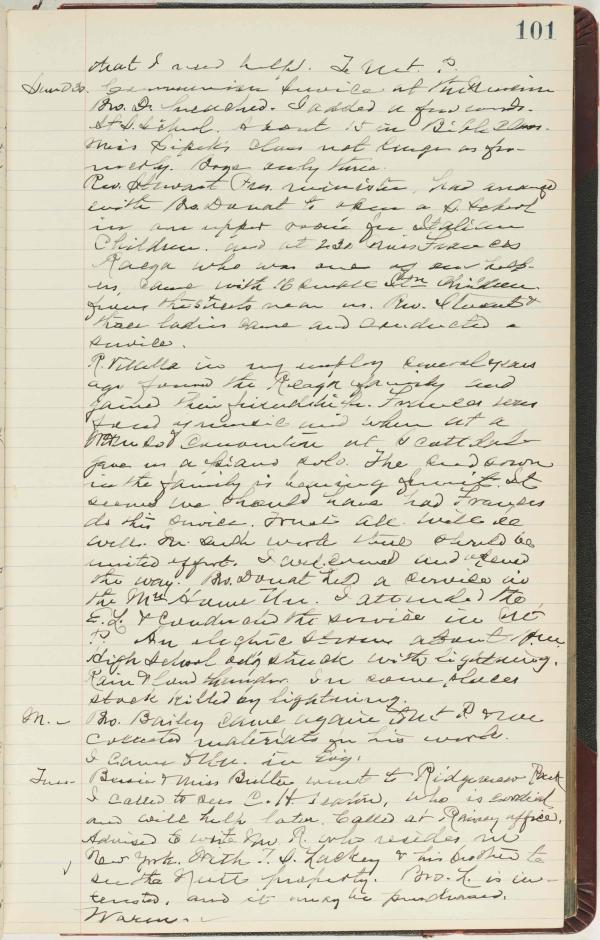 101
that I need help. To Mt. P.
Sun 30. Communion Service at the
Bro. D. preached. I added a few words.
At S. School. about 15 in Bible Class.
Miss class not larger as for-
merly. Boys only three.
Rev. Stewart Pres. minister, had arranged
with Bro. Donat to open a S. School
in an upper room for Italian
Children. and at 2.30 Miss Frances
Raega who was one of our help-
us, came with 16 small Children
from the streets near us. Rev. Stewart &
three ladies came and conducted a
service.
R. Vitalla in my employ several years
ago found the Raega family and
gained their friendship. Frances was
fond of music and when at a
Convention at Scottdale
gave us a piano solo. The
in the family is bearing fruit. It
seems we should have had Frances
do this service. Trust all will be
well. In such work there should be
united effort. I welcomed and opened
the way. Bro. Donat held a service in
the Mt. Home Un. I attended the
E. L. & conducted the service in Mt
P. An electric storm about
High School bdg struck with lightning.
Rain & loud thunder. In some places
stock killed by lightning.
M. – Bro. Bailey came again to Mt P. & we
collected materials for his work.
I came home in Evg.
Tues – Bessie & Miss Butler went to Ridgeview Park
I called to see C. H. who is cordial
and will help later. Called at Rainey office.
Advised to write Mr. R. who resides in
New York. With I. S. Lackey & his brother to
see the Nutt property. Bro. L. is in-
terested, and it may be purchased.
Warm.